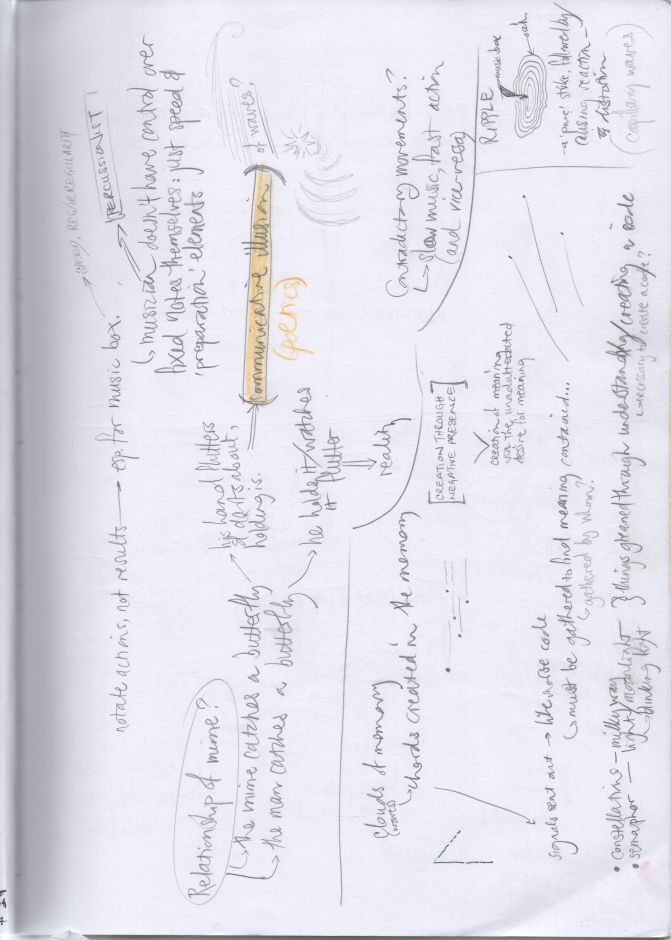 notate actions, not results → esp. for music box.
↳ musician doesn't have control over
fixed notes themselves: just speed &
'preparation' elements
PERCUSSIONIST!
REG/IRREGULARITY
Relationship of mime?
↳ the mime catches a butterfly
↳ the man catches a butterfly
his hand flutters
& darts about,
holding is.
(communicative illusion) of waves?
(poetics)
he holds it/watches
it flutter
reality
Clouds of memory
chords created in the memory
[CREATION THROUGH
NEGATIVE PRESENCE]
creation of meaning
via the unadulterated
desire for meaning
Contradictory movements?
↳ slow music, fast action
(and vice-versa)
RIPPLE
music box
- a 'pure' strike, followed by
causing reaction -
& distortion.
(capillary waves)
signals sent out → like morse code
↳ must be gathered to find meaning contained...
↳ gathered by whom?
• constellations - milky way
• semaphor — light/moonlight
↳ blinking light
} things gleaned through understanding/creating a code
↳ necessary to create a code?